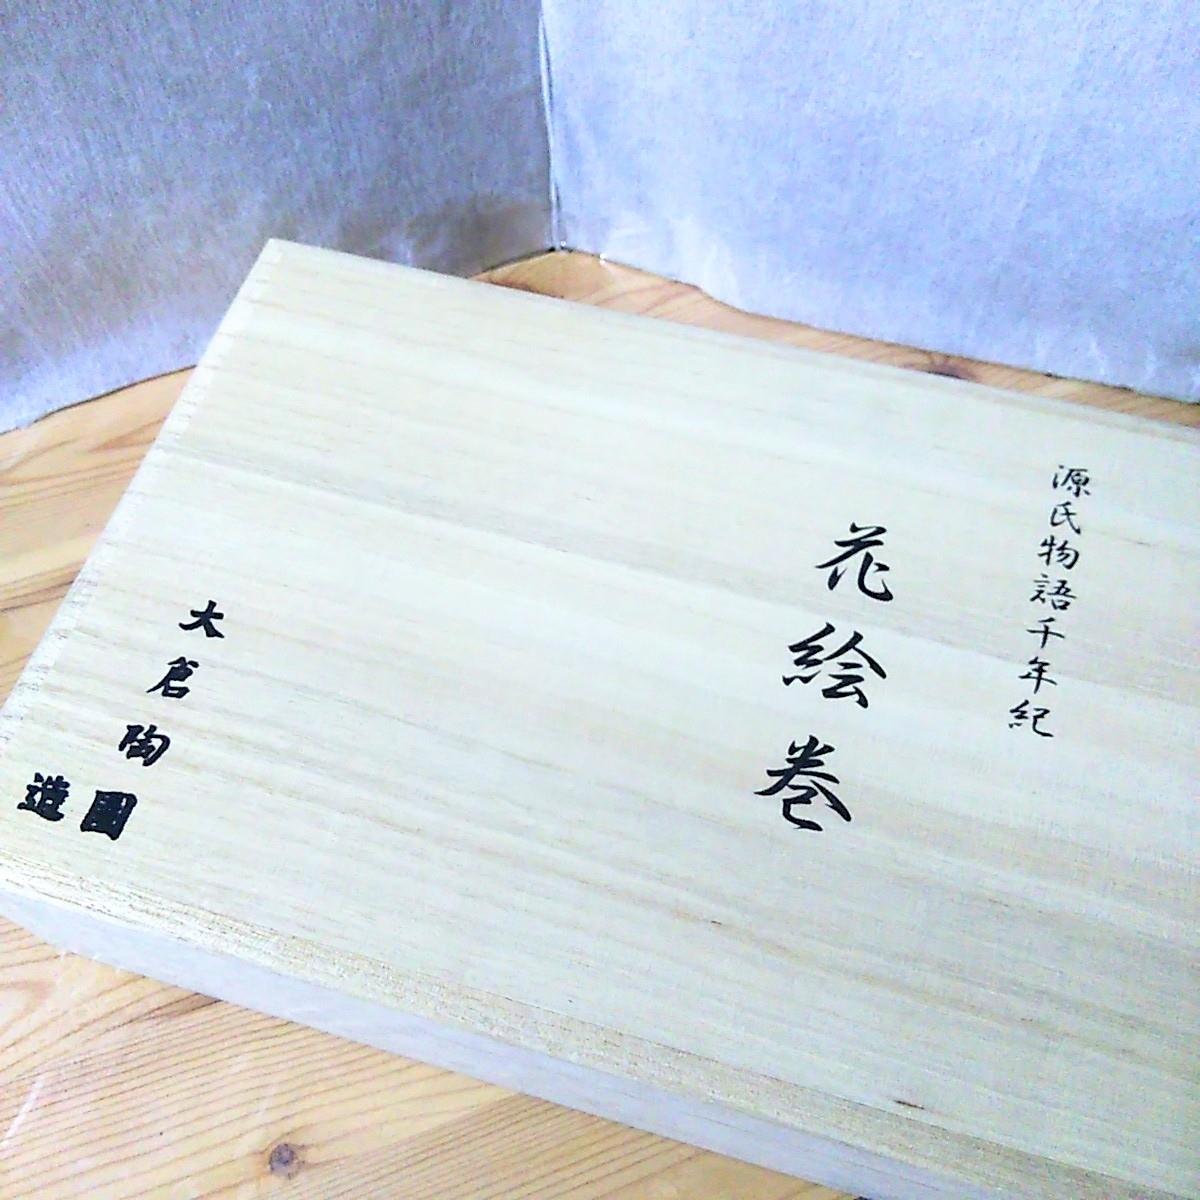 源氏物語千年紀
花絵巻
大倉陶園造